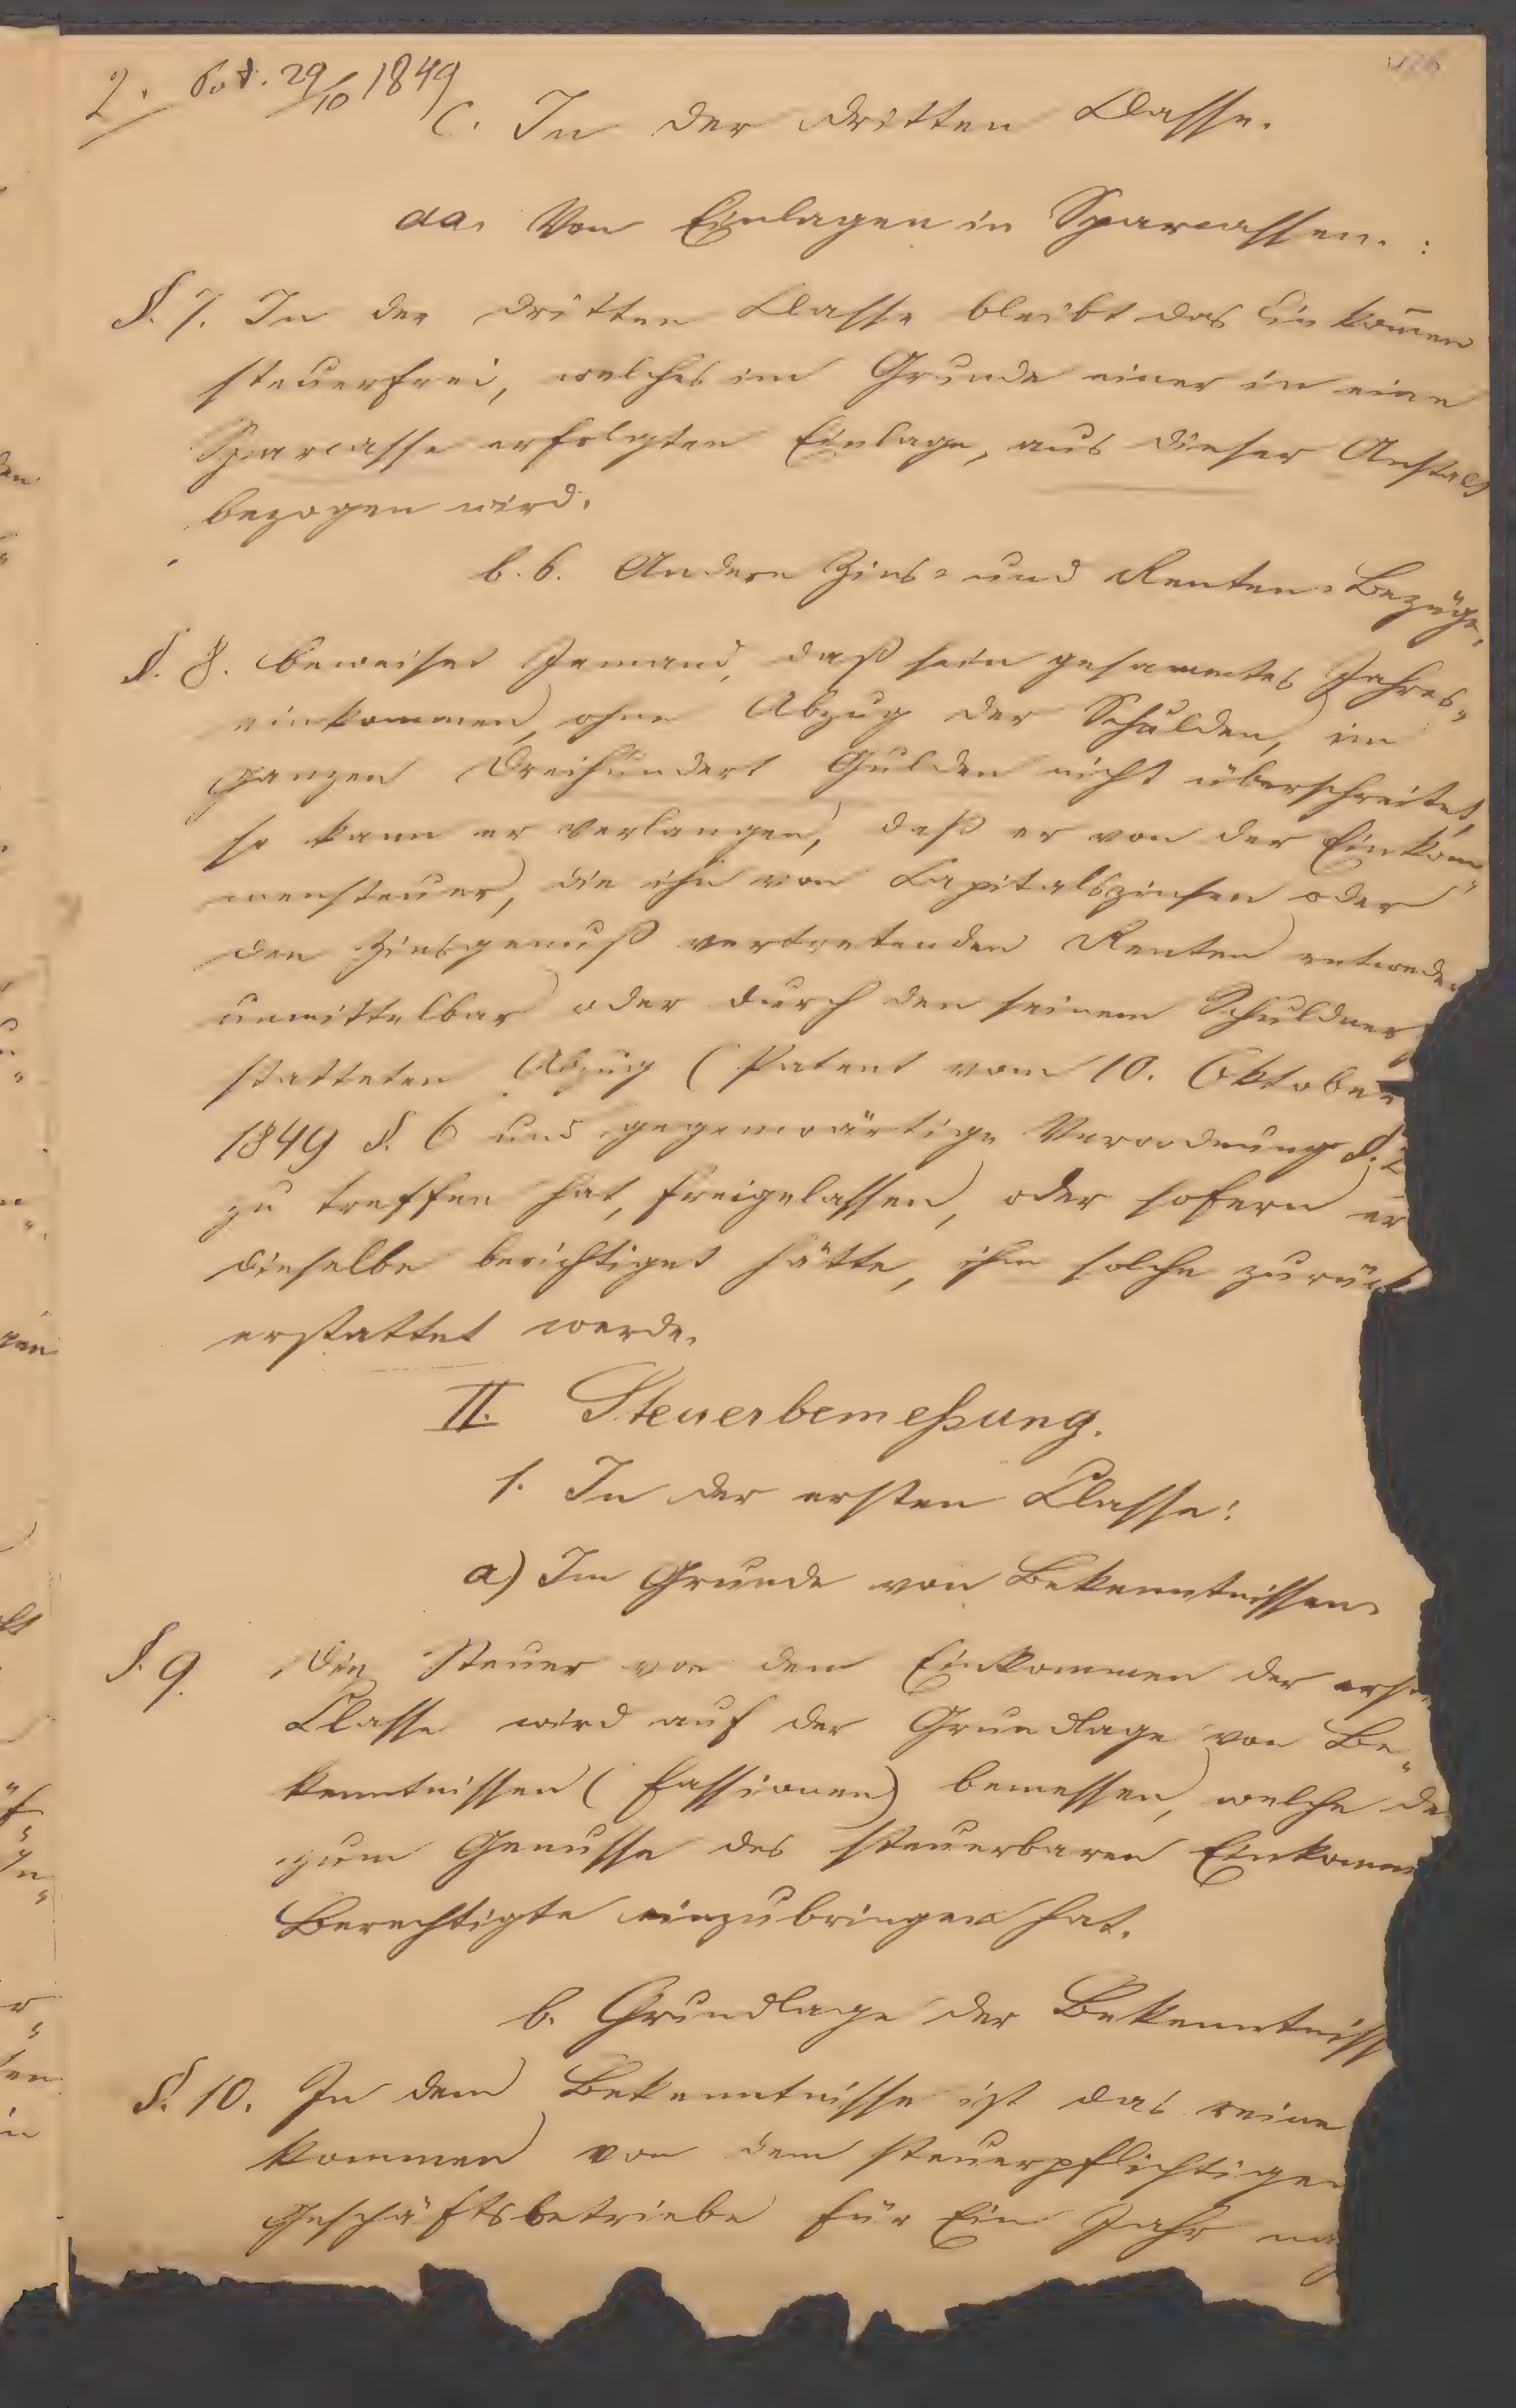 2. Pat. 29/10 1849
C. In der dritten Classe.
aa. Von Einlagen in Sparcassen. :
§. 7. In der dritten Classe bleibt das Einkom̄en
steuerfrei, welches im Grunde einer in eine
Sparcasse erfolgten Einlage, aus dieser Anstalt
bezogen wird.
b.b. Andere Zins= und Renten=Bezüge.
§. 8. Beweiset Jemand, daß sein gesammtes Jahres„
einkommen, ohne Abzug der Schulden, im
ganzen Dreihundert Gulden nicht überschreitet,
so kann er verlangen, daß er von der Einkom„
mensteuer, die ihn von Capitalszinsen oder
den Zinsgenuß vertretenden Renten entweder
unmittelbar oder durch den seinem Schuldner
statteten Abzug (Patent vom 10. Oktober
1849 §. 6 und gegenwärtige Verordnung §. 2
zu treffen hat, freigelassen, oder sofern er
dieselbe berichtiget hätte, ihm solche zurück
erstattet werde.
II. Steuerbemeßung.
1. In der ersten Classe:
a) Im Grunde von Bekenntnissen.
§. 9. Die Steuer von dem Einkommen der ersten
Classe wird auf der Grundlage von Be„
kenntnissen (Fassionen) bemessen, welche de
zum Genusse des steuerbaren Einkomm
Berechtigte einzubringen hat.
b. Grundlage der Bekenntniss
§. 10. In dem Bekenntnisse ist das reine
kommen von dem steuerpflichtigen
Geschäftsbetriebe für Ein Jahr na